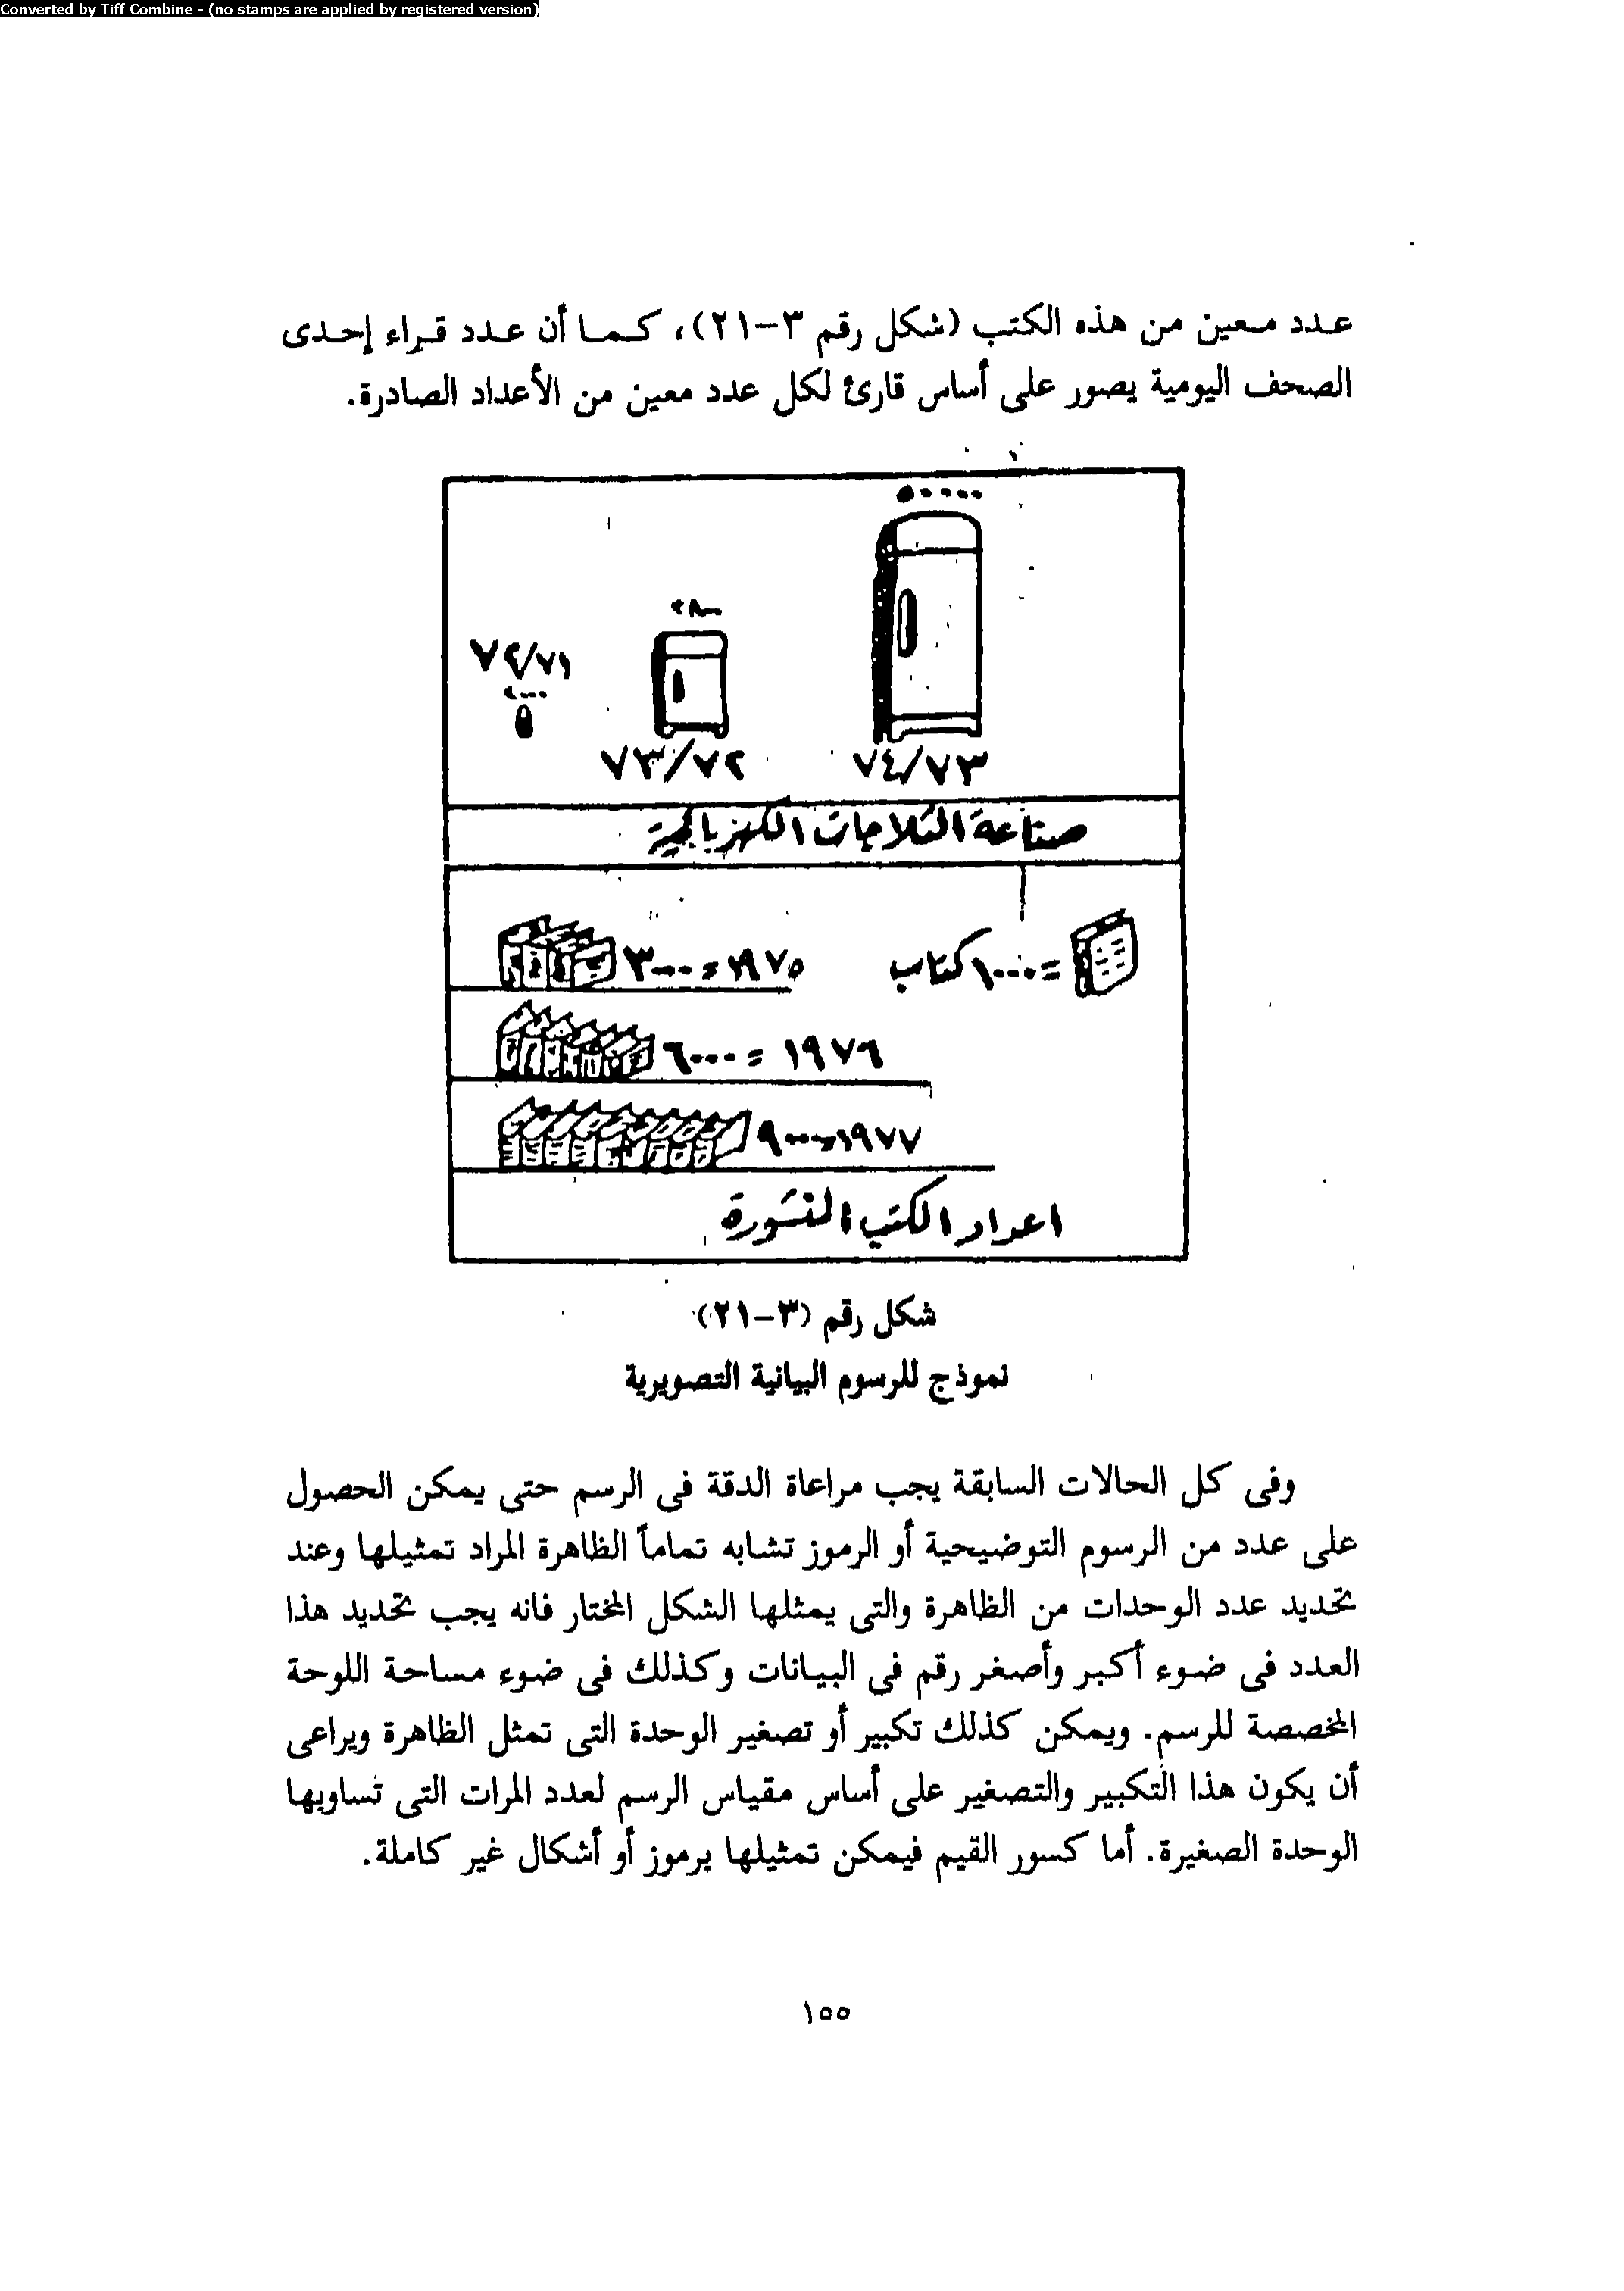 Converted by Tiff Combine - (no stamps are applied by registered version)
عدد معين من هذه الكتب (شكل رقم ٣-٢١)، كما أن عدد قراء إحدى
الصحف اليومية يصور على أساس قارئ لكل عدد معين من الأعداد الصادرة.
٧٢/٧١
٧٣/٧٢
٧٤/٧٣
صناعة الثلاجات الكهربائية
= ١٠٠٠ كتاب
١٩٧٥ = ٣٠٠٠
١٩٧٦ = ٦٠٠٠
١٩٧٧ = ٩٠٠٠
اعداد الكتب المنشورة
شكل رقم (٣-٢١)
نموذج للرسوم البيانية التصويرية
وفى كل الحالات السابقة يجب مراعاة الدقة فى الرسم حتى يمكن الحصول
على عدد من الرسوم التوضيحية أو الرموز تشابه تماماً الظاهرة المراد تمثيلها وعند
تحديد عدد الوحدات من الظاهرة والتى يمثلها الشكل المختار فانه يجب تحديد هذا
العدد فى ضوء أكبر وأصغر رقم فى البيانات وكذلك فى ضوء مساحة اللوحة
المخصصة للرسم. ويمكن كذلك تكبير أو تصغير الوحدة التى تمثل الظاهرة ويراعى
أن يكون هذا التكبير والتصغير على أساس مقياس الرسم لعدد المرات التى تساويها
الوحدة الصغيرة. أما كسور القيم فيمكن تمثيلها برموز أو أشكال غير كاملة.
١٥٥